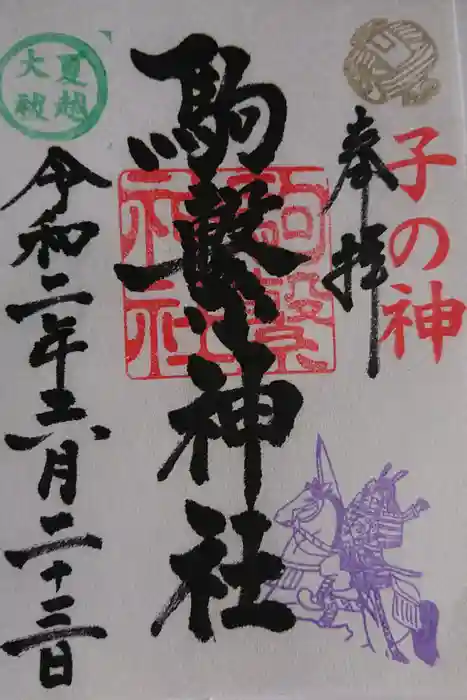 子の神
奉拝
駒繋神社
駒繋
神社
夏越
大祓
令和二年六月二十三日